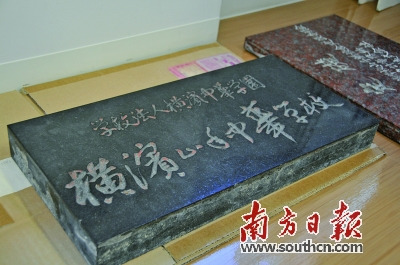 学校法人横濱中華学園
横濱山手中華学校
南方日報
www.southcn.com